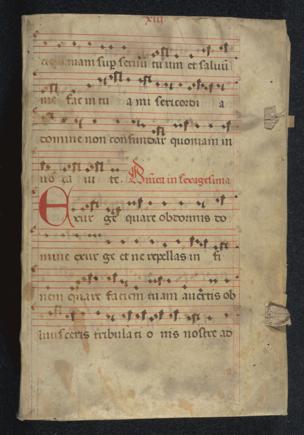 xiiii
nam sup servū tuum et salvū
me fac in tu a mi sericordi a
domine non confundar quoniam in
vo ca vi te. Dn̄ica in sexagesima
Exur ge quare obdormis do
mine exur ge et ne repellas in fi
nem quare faciem tuam avertis ob
livisceris tribula ti o nis nostre ad